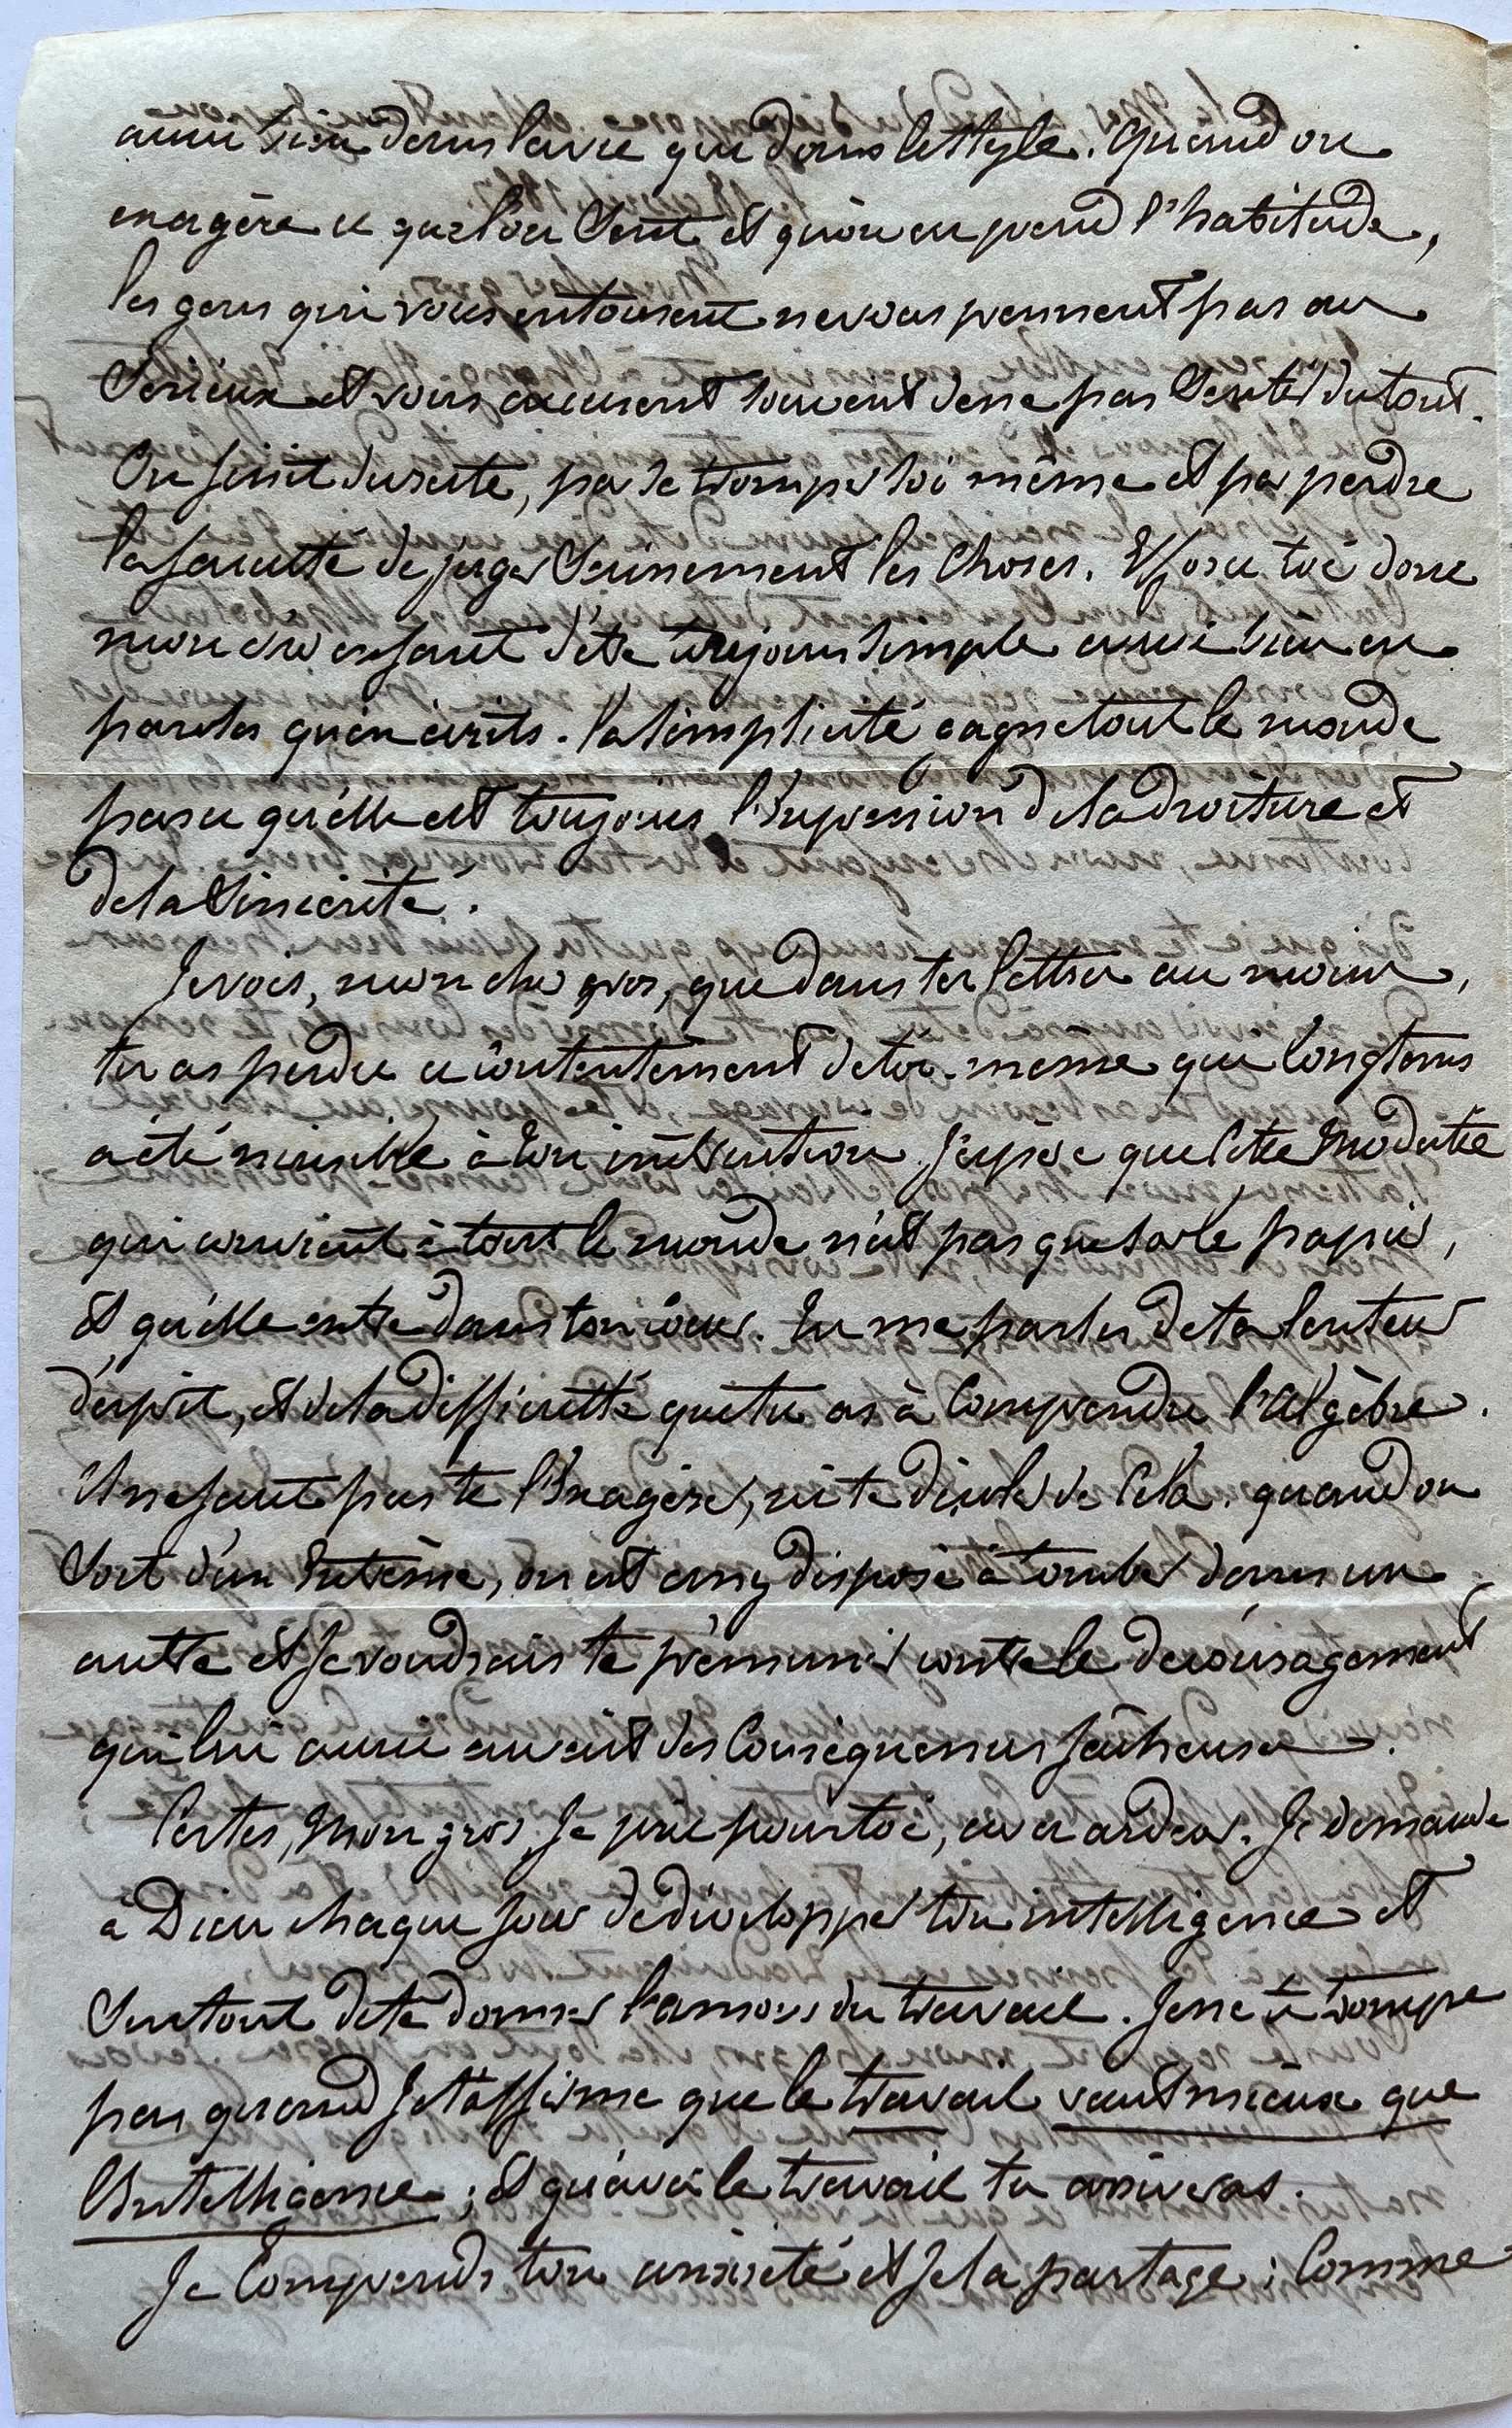 aussi bien dans la vie que dans le style. Quand on
exagère ce que l'on sent et qu'on en prend l'habitude,
les gens qui vous entourent ne vous prennent pas au
sérieux et vous accusent souvent de ne pas sentir du tout.
On finit du reste, par se tromper soi même et par perdre
la faculté de juger sainement les choses. Efforce toi donc
mon cher enfant d'être toujours simple aussi bien en
paroles qu'en écrits. La simplicité gagne tout le monde
parce qu'elle est toujours l'expression de la droiture et
de la sincérité.
Je vois, mon cher gros, que dans tes lettres au moins,
tu as perdu ce contentement de toi-même qui longtems
a été nuisible à ton instruction. J'espère que cette modestie
qui convient à tout le monde n'est pas que sur le papier,
et qu'elle entre dans ton cœur. Tu me parles de ta lenteur
d'esprit, et de la difficulté que tu as à comprendre l'algèbre.
Il ne faut pas te l'exagérer, ni te désoler de cela. quand on
sort d'un extrême, on est assez disposé à tomber dans un
autre et je voudrais te prémunir contre le découragement
qui lui aussi aurait des conséquences fâcheuses.
Certes, mon gros, je prie pour toi, avec ardeur. Je demande
à Dieu chaque jour de développer ton intelligence et
surtout de te donner l'amour du travail. Je ne te trompe
pas quand je t'affirme que le travail vaut mieux que
l'intelligence ; et qu'avec le travail tu arriveras.
Je comprends ton anxiété et je la partage ; comme